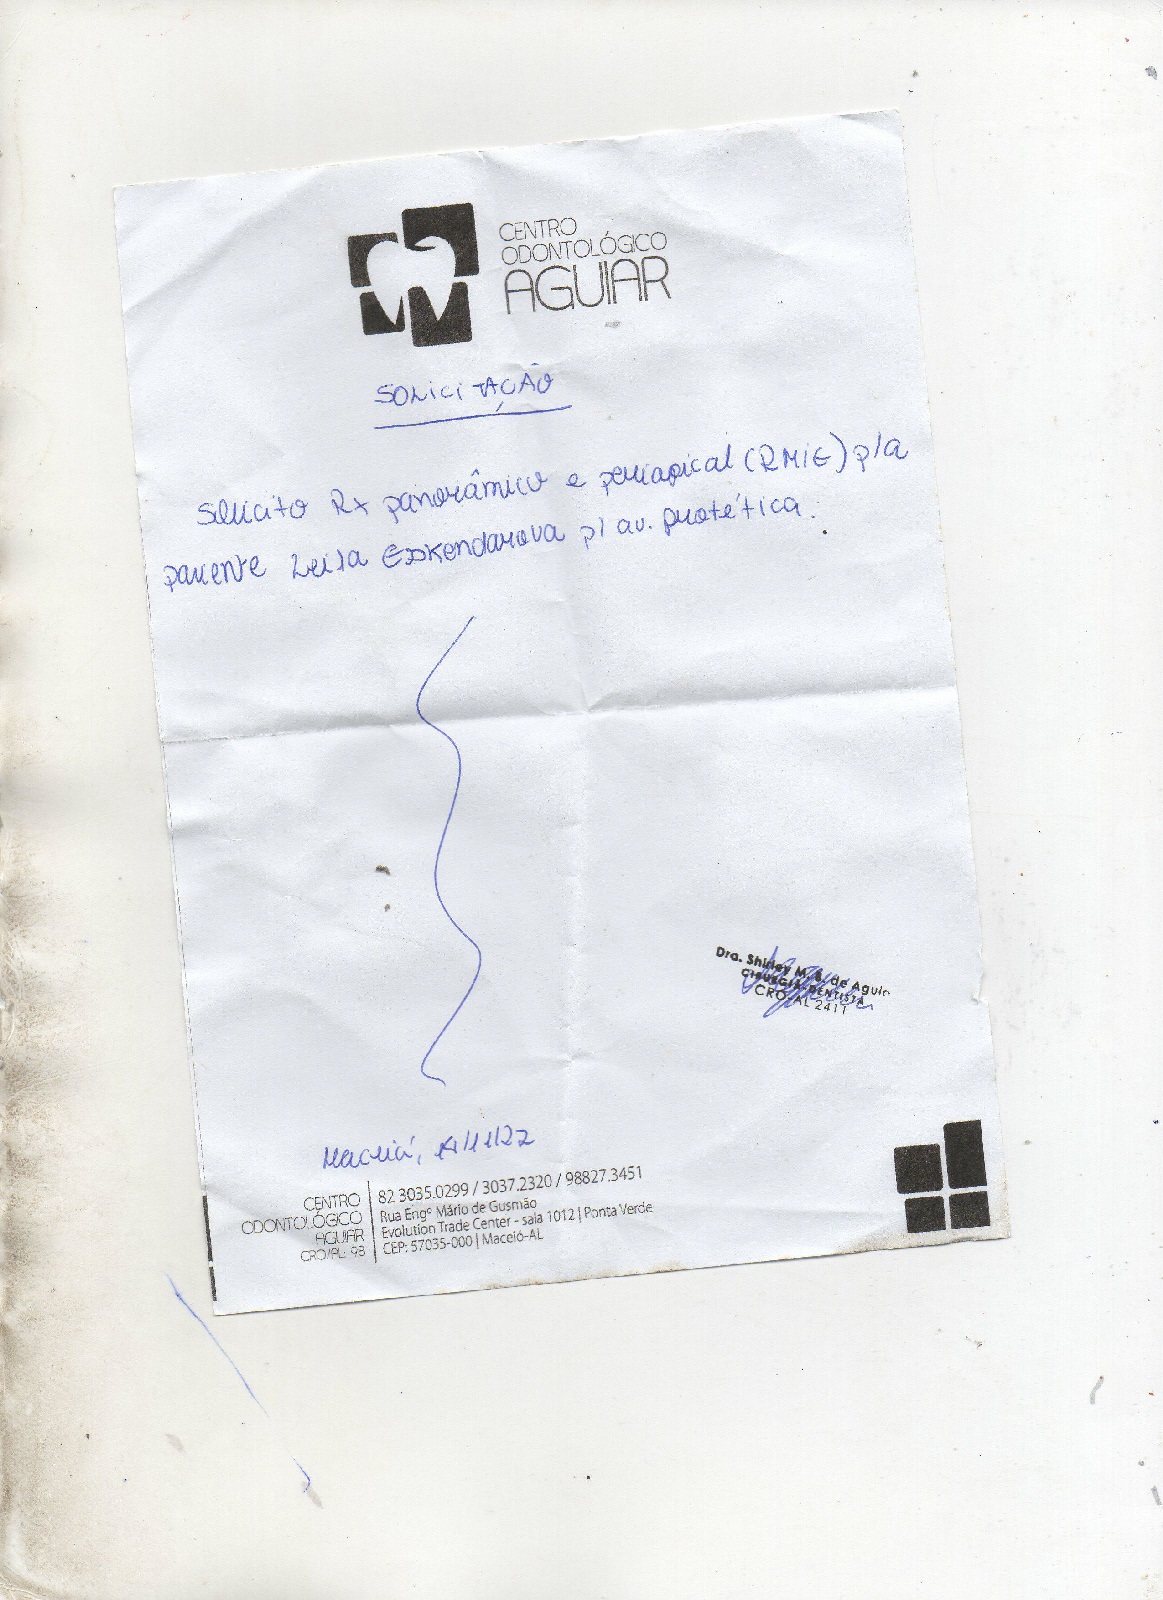 CENTRO
ODONTOLÓGICO
AGUIAR
SOLICITAÇÃO
Solicito Rx panorâmico e periapical (RMIE) p/a
paciente Leila Esskendarova p/ av. protética.
Dra. Shirley M. S. de Aguiar
CIRURGIÃ-DENTISTA
CRO-AL 2411
Maceió, /11/22
CENTRO
ODONTOLÓGICO
AGUIAR
CRO/PL: 93
82 3035.0299 / 3037.2320 / 98827.3451
Rua Engº Mário de Gusmão
Evolution Trade Center - sala 1012 | Ponta Verde
CEP: 57035-000 | Maceió-AL